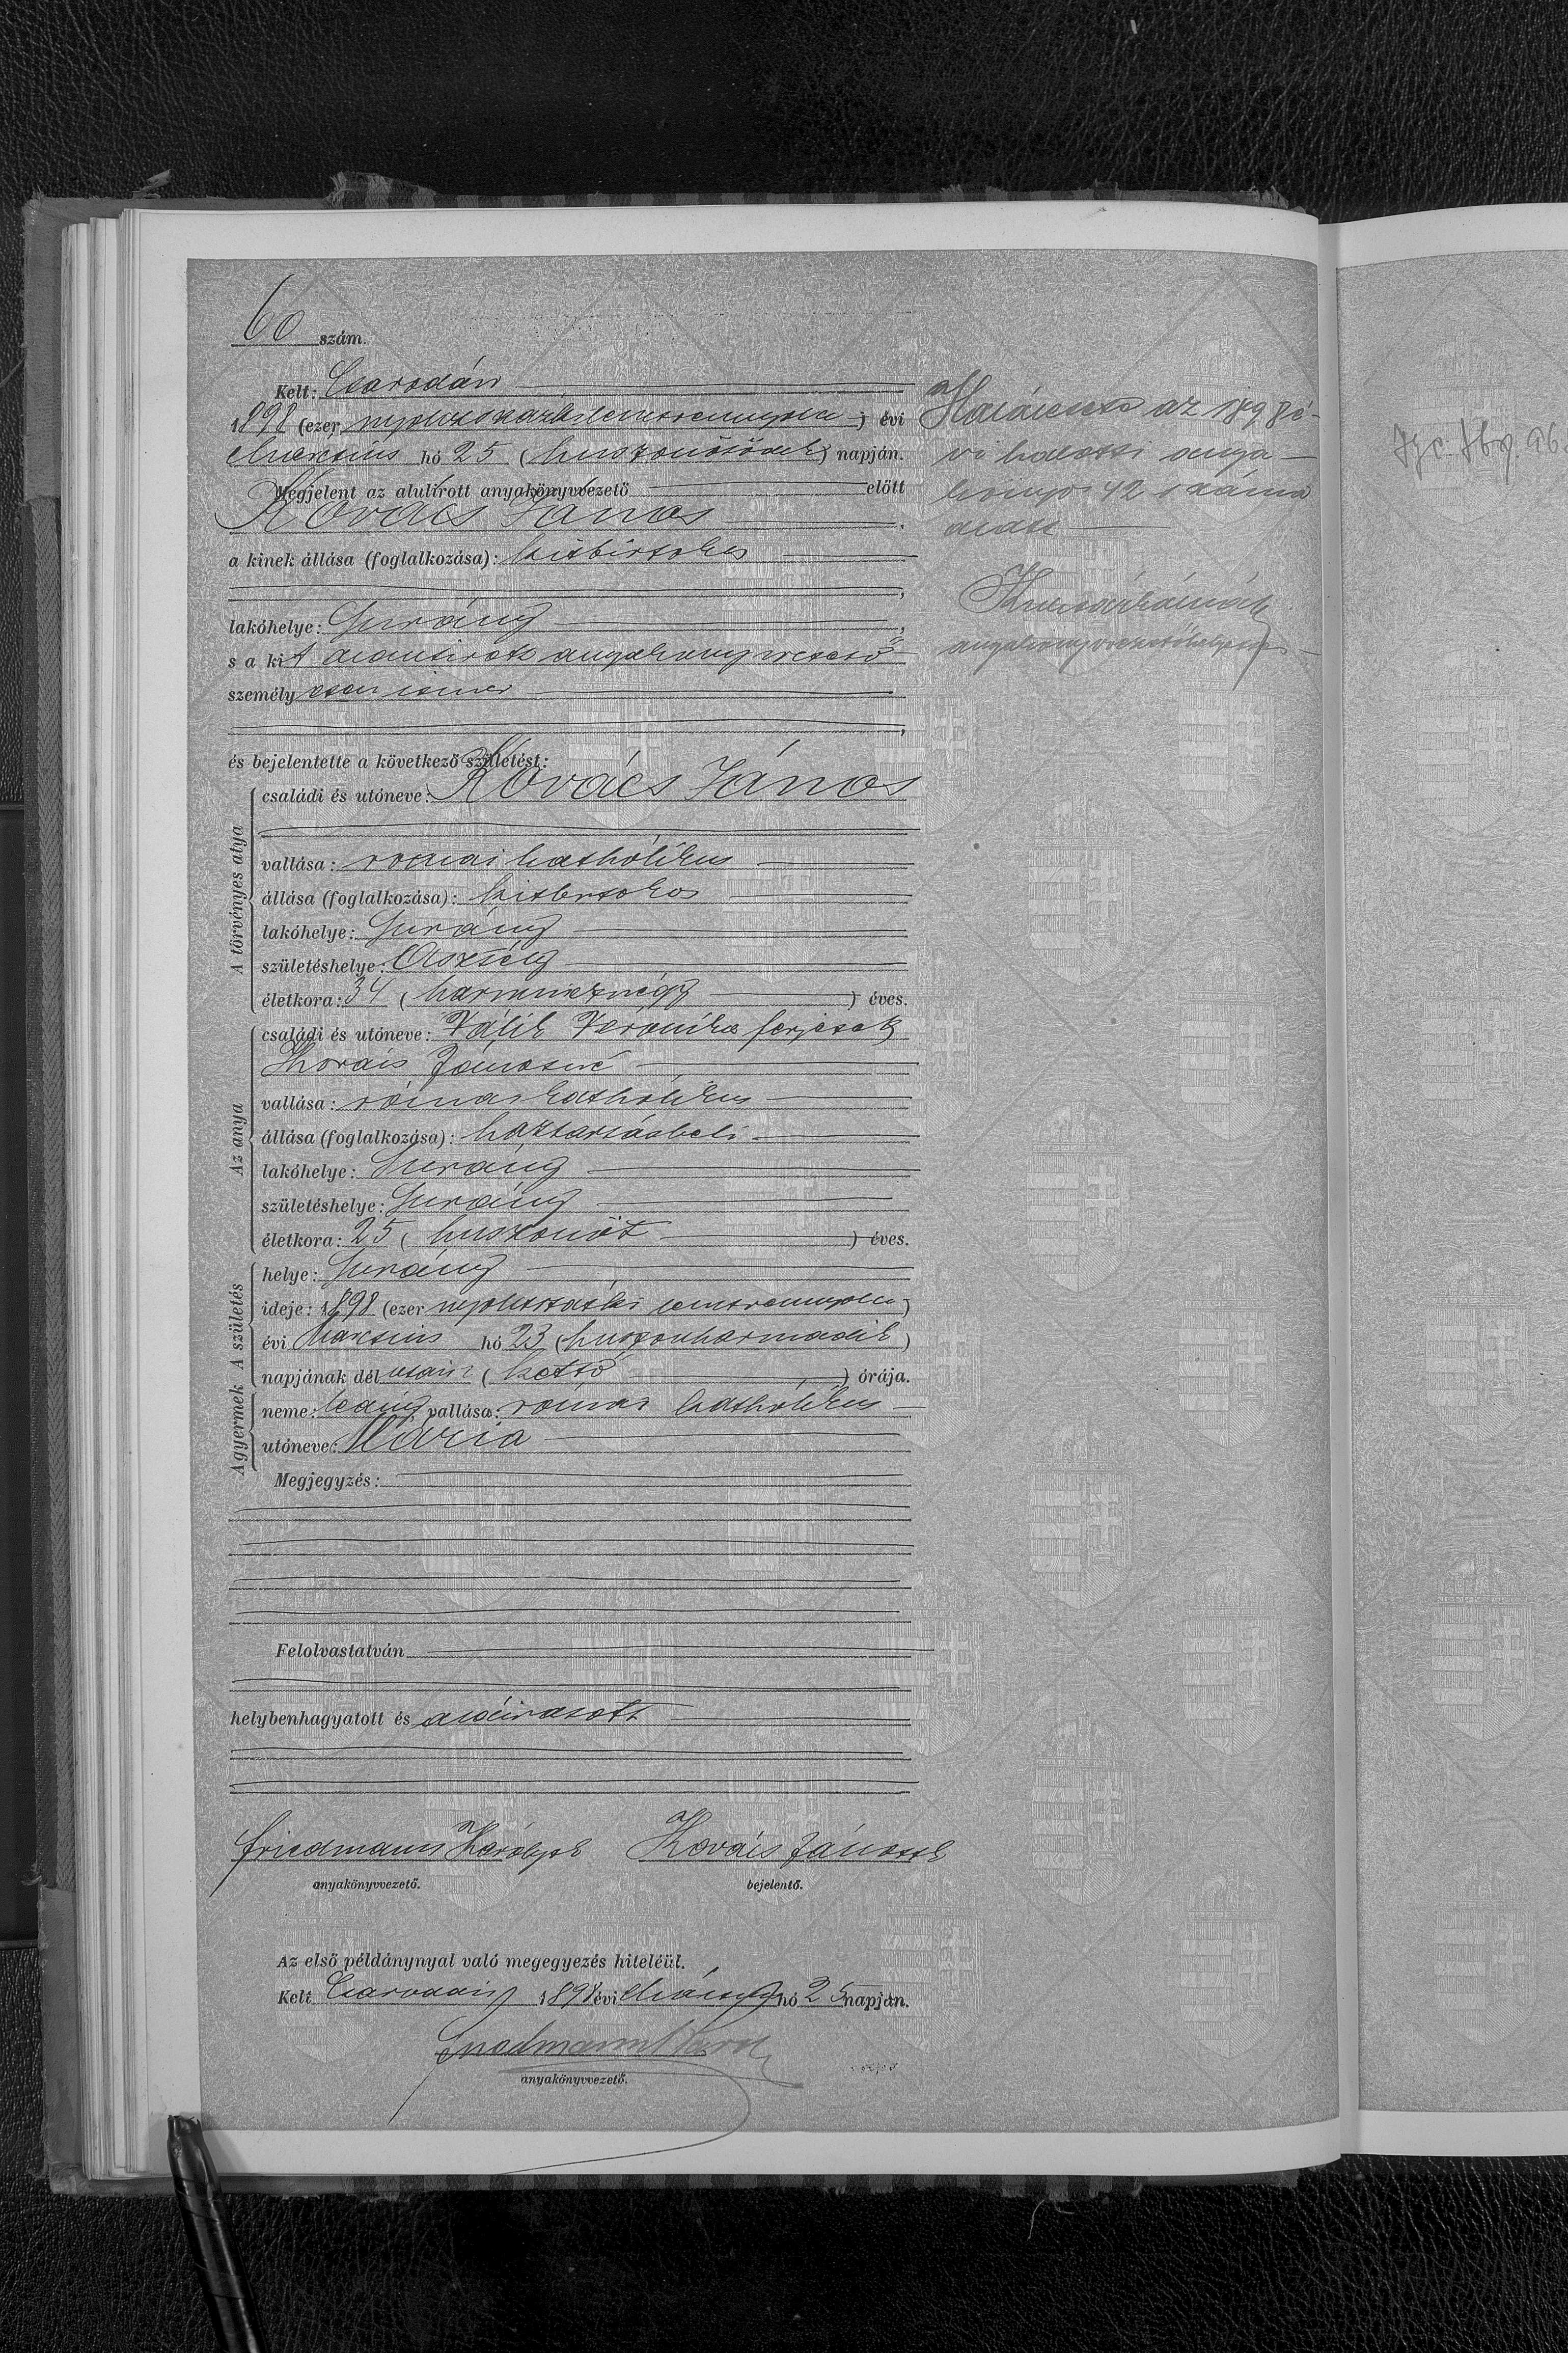 60 szám.
Kelt: Csarodán
1898 (ezer nyolczszázkilenczvennyolcz) évi
Marczius hó 25 (huszonötödik) napján.
Megjelent az alulirott anyakönyvvezető előtt
Kovács János
a kinek állása (foglalkozása): kisbirtokos
lakóhelye: Surány
s a kit alantirott anyakönyvvezető
személyesen ismer
és bejelentette a következő születést:
A törvényes atya
családi és utóneve: Kovács János
vallása: romai katholikus
állása (foglalkozása): kisbirtokos
lakóhelye: Surány
születéshelye: Asztély
életkora: 34 (harmincznégy) éves.
Az anya
családi és utóneve: Válik Veronika férjezett
Kovács Jánosné
vallása: római katholikus
állása (foglalkozása): háztartásbeli
lakóhelye: Surány
születéshelye: Surány
életkora: 25 (huszonöt) éves.
A születés
helye: Surány
ideje: 1898 (ezer nyolczszázkilenczvennyolcz)
évi Marczius hó 23 (huszonharmadik)
napjának délután 2 (kettő) órája.
A gyermek
neme: leány, vallása: római katholikus
utóneve: Mária
Megjegyzés:
Felolvastatván
helybenhagyatott és aláiratott
Friedmann Károly sk Kovács János sk
anyakönyvvezető. bejelentő.
Az első példánynyal való megegyezés hiteléül.
Kelt Csarodán 1898 évi Márcz hó 25 napján.
Friedmann Károly
anyakönyvvezető.
Haláleset az 1898 é-
vi halotti anya-
könyv 42 száma
alatt
anyakönyvvezetőhelyettes